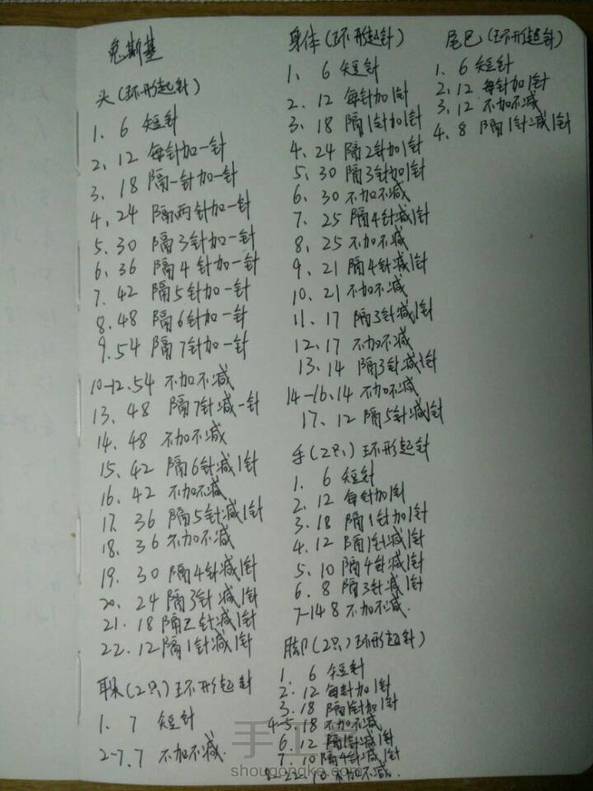 兔斯基
头(环形起针)
1、6 短针
2、12 每针加一针
3、18 隔一针加一针
4、24 隔两针加一针
5、30 隔3针加一针
6、36 隔4针加一针
7、42 隔5针加一针
8、48 隔6针加一针
9、54 隔7针加一针
10-12、54 不加不减
13、48 隔7针减一针
14、48 不加不减
15、42 隔6针减1针
16、42 不加不减
17、36 隔5针减1针
18、36 不加不减
19、30 隔4针减1针
20、24 隔3针减1针
21、18 隔2针减1针
22、12 隔1针减1针
耳朵(2只)环形起针
1、7 短针
2-7、7 不加不减.
身体(环形起针)
1、6 短针
2、12 每针加1针
3、18 隔1针加1针
4、24 隔2针加1针
5、30 隔3针加1针
6、30 不加不减
7、25 隔4针减1针
8、25 不加不减
9、21 隔4针减1针
10、21 不加不减
11、17 隔3针减1针
12、17 不加不减
13、14 隔3针减1针
14-16、14 不加不减
17、12 隔5针减1针
手(2只)环形起针
1、6 短针
2、12 每针加1针
3、18 隔1针加1针
4、12 隔1针减1针
5、10 隔4针减1针
6、8 隔3针减1针
7-14 8 不加不减.
脚(2只)环形起针)
1、6 短针
2、12 每针加1针
3、18 隔1针加1针
4-5、18 不加不减
6、12 隔1针减1针
7、10 隔4针减1针
22、10 不加不减.
尾巴(环形起针)
1、6 短针
2、12 每针加1针
3、12 不加不减
4、8 隔1针减1针
手工客
shougongke.com